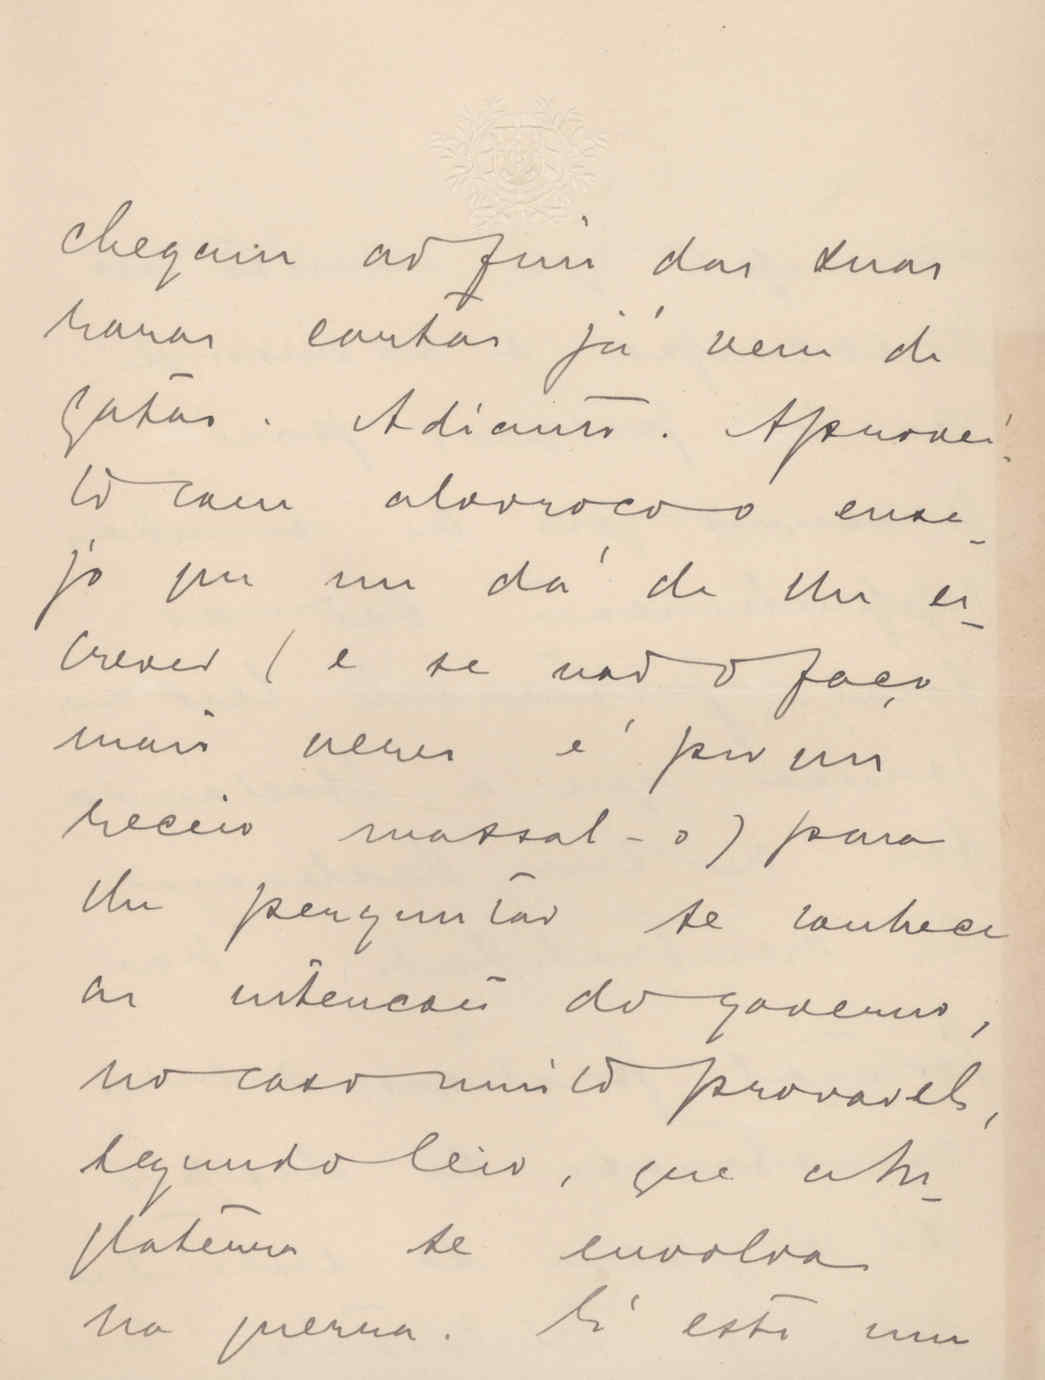 chegam ao fim das suas
raras cartas já vem de
gatas. Adiante. Aprovei-
to com alvoroço o ense-
jo que me dá de lhe es-
crever (e se não o faço
mais vezes é por um
receio massal-o) para
lhe perguntar se conhece
as intenções do governo,
no caso muito provavel,
segundo leio, que a In-
glaterra se envolva
na guerra. É este um